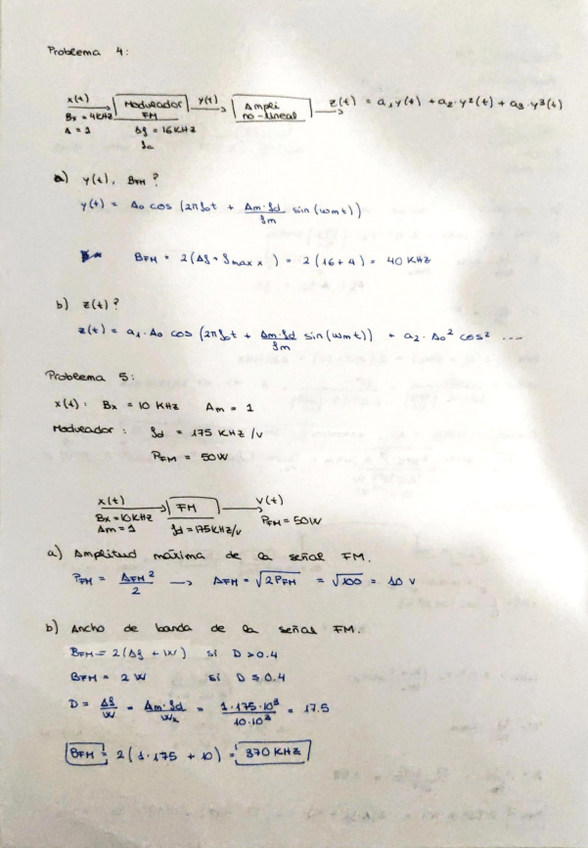 Problema 4:
x(t) Modulador FM y(t) Ampli no-lineal z(t) = a₁y(t) + a₂·y²(t) + a₃·y³(t)
Bx = 4KHz
A = 1 Δf = 16KHz
fc
a) y(t), BFM ?
y(t) = A₀ cos (2πf₀t + Am·fd/fm sin(ωmt))
BFM = 2(Δf + fmax x) = 2(16+4) = 40 KHz
b) z(t) ?
z(t) = a₁·A₀ cos (2πf₀t + Am·fd/fm sin(ωmt)) + a₂·A₀² cos² ....
Problema 5:
x(t): Bx = 10 KHz Am = 1
Modulador: fd = 175 KHz/v
PFM = 50W
x(t) FM v(t)
Bx = 10KHz fd = 175KHz/v PFM = 50W
Am = 1
a) Amplitud máxima de la señal FM.
PFM = AFM²/2 → AFM = √2PFM = √100 = 10 v
b) Ancho de banda de la señal FM.
BFM = 2(Δf + W) si D > 0.4
BFM = 2W si D ≤ 0.4
D = Δf/W = Am·fd/Wx = 1·175·10³/10·10³ = 17.5
BFM = 2(1·175 + 10) = 370 KHz